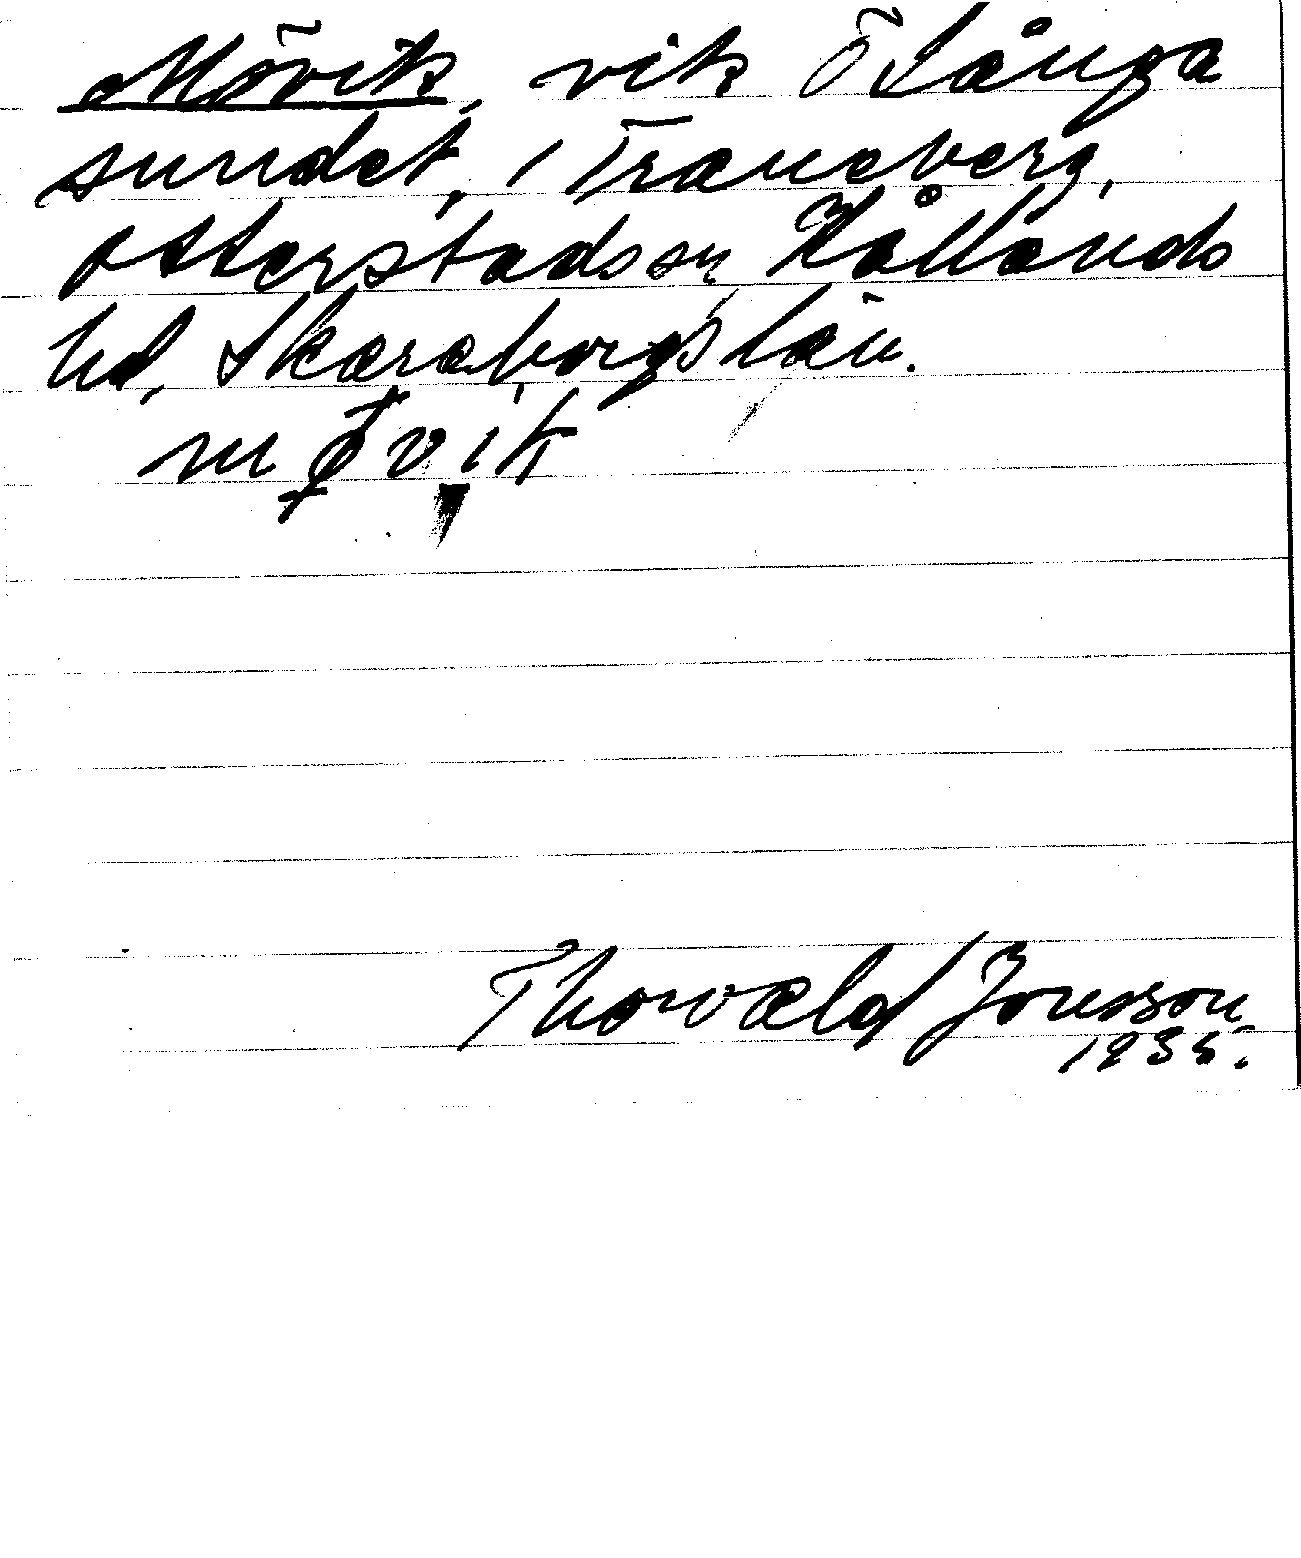 Mövik, vik Ö Långa
sundet, i Traneberg,
Otterstads sn, Kållands
hd, Skaraborgs län.
mø̄vik
Thorvald Jonsson
1935.